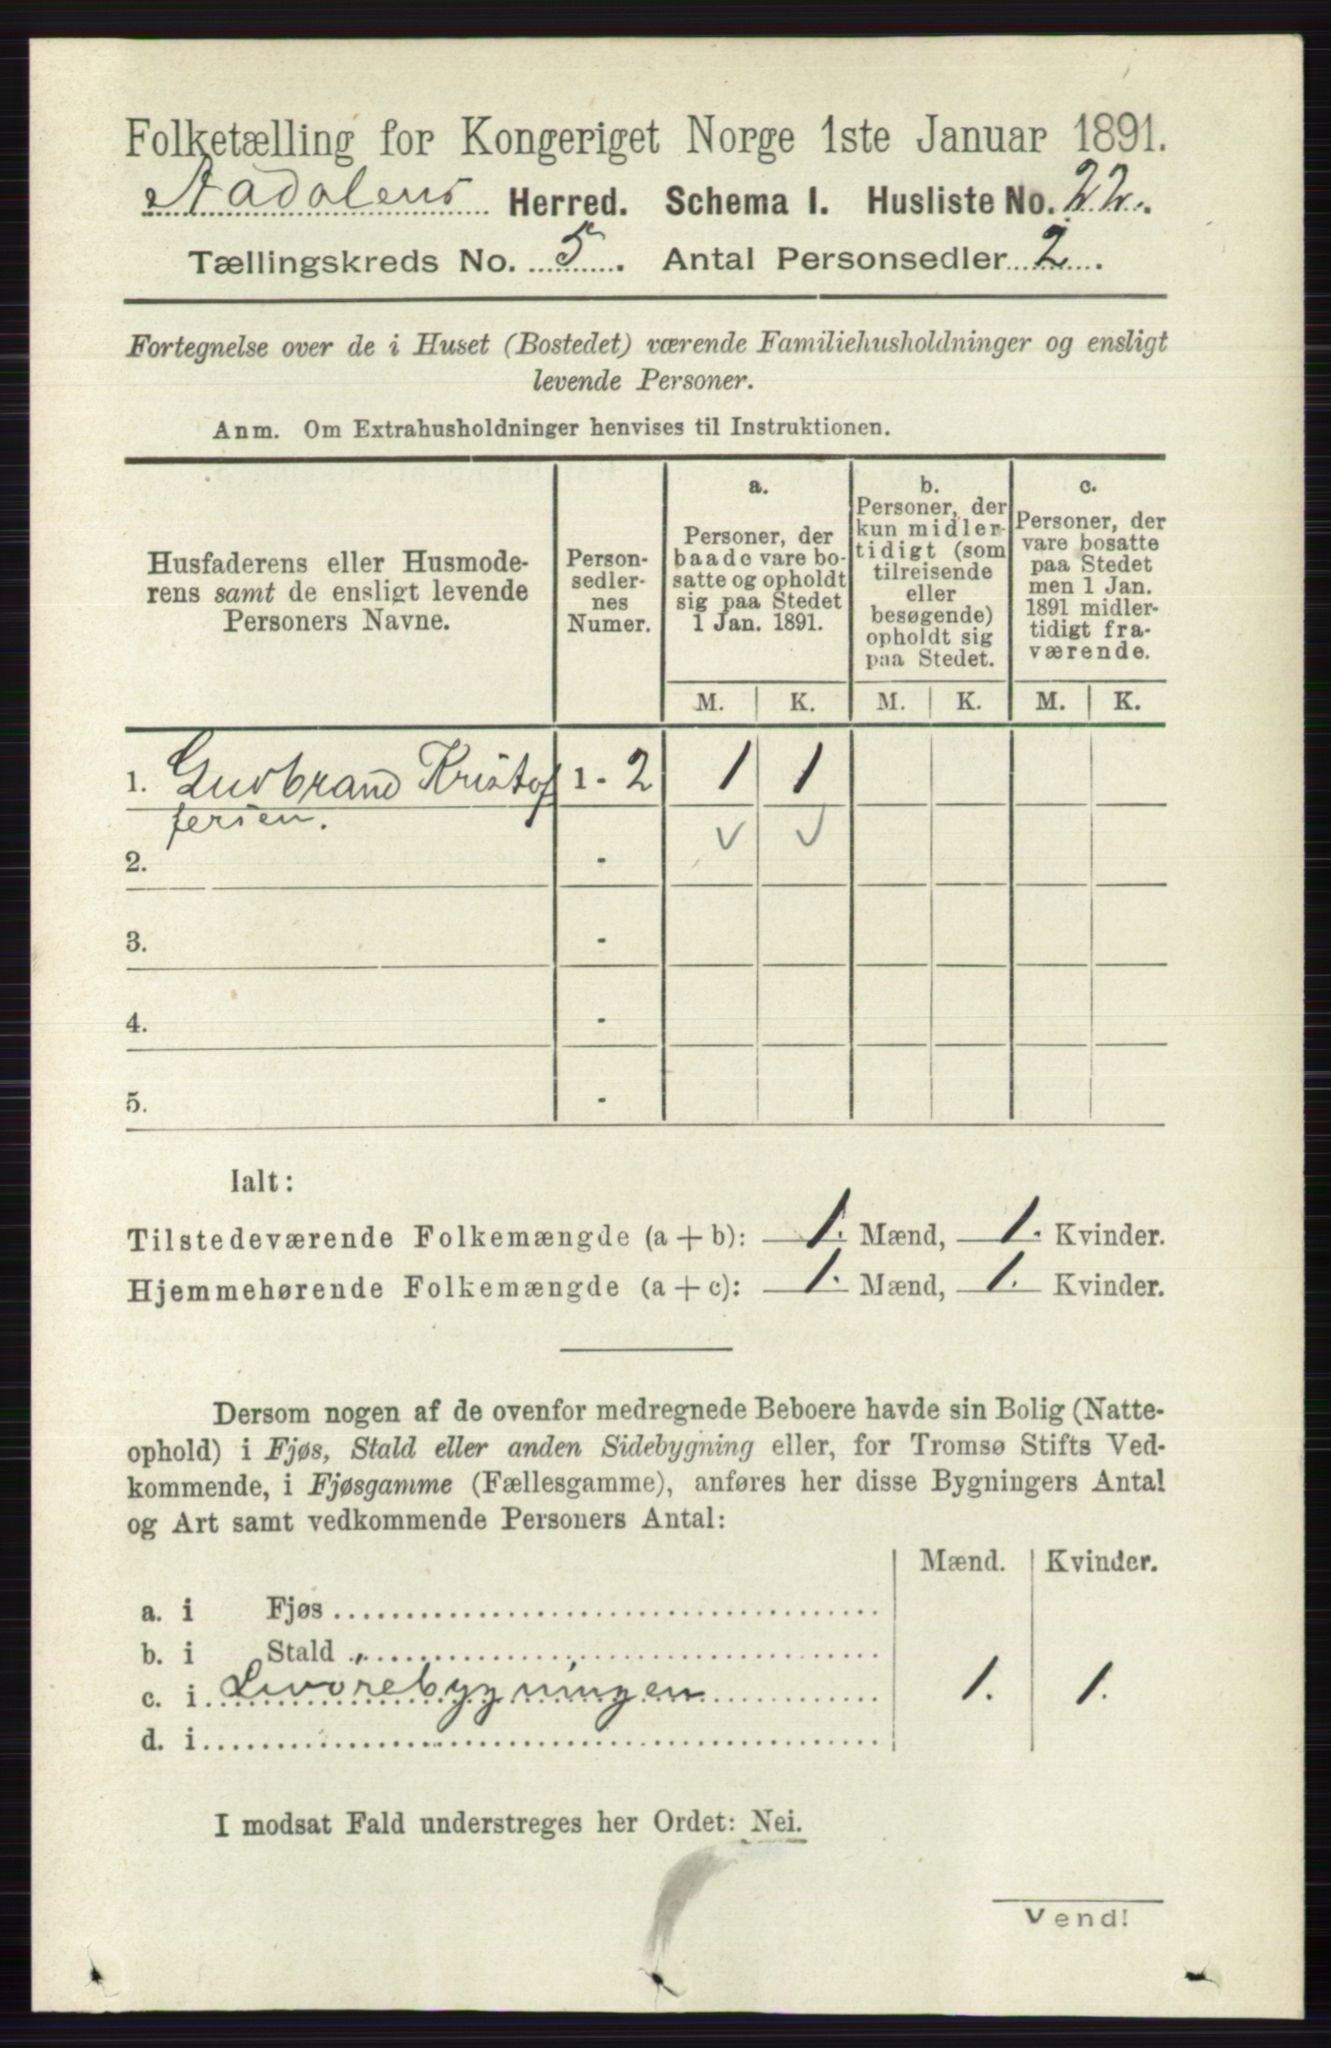 Folketælling for Kongeriget Norge 1ste Januar 1891.
Aadalens Herred. Schema I. Husliste No. 22.
Tællingskreds No. 5. Antal Personsedler 2.
Fortegnelse over de i Huset (Bostedet) værende Familiehusholdninger og ensligt
levende Personer.
Anm. Om Extrahusholdninger henvises til Instruktionen.
Husfaderens eller Husmode-
rens samt de ensligt levende
Personers Navne.
Person-
sedler-
nes
Numer.
a.
Personer, der
baade vare bo-
satte og opholdt
sig paa Stedet
1 Jan. 1891.
b.
Personer, der
kun midler-
tidigt (som
tilreisende
eller
besøgende)
opholdt sig
paa Stedet.
c.
Personer, der
vare bosatte
paa Stedet
men 1 Jan.
1891 midler-
tidigt fra-
værende.
M. K. M. K. M. K.
1. Gudbrand Kristof 1 - 2 1 1
fersen.
2. -
3. -
4. -
5. -
Ialt:
Tilstedeværende Folkemængde (a + b): 1. Mænd, 1. Kvinder.
Hjemmehørende Folkemængde (a + c): 1. Mænd, 1. Kvinder.
Dersom nogen af de ovenfor medregnede Beboere havde sin Bolig (Natte-
ophold) i Fjøs, Stald eller anden Sidebygning eller, for Tromsø Stifts Ved-
kommende, i Fjøsgamme (Fællesgamme), anføres her disse Bygningers Antal
og Art samt vedkommende Personers Antal:
Mænd. Kvinder.
a. i Fjøs
b. i Stald
c. i 1. 1.
d. i
I modsat Fald understreges her Ordet: Nei.
Vend!